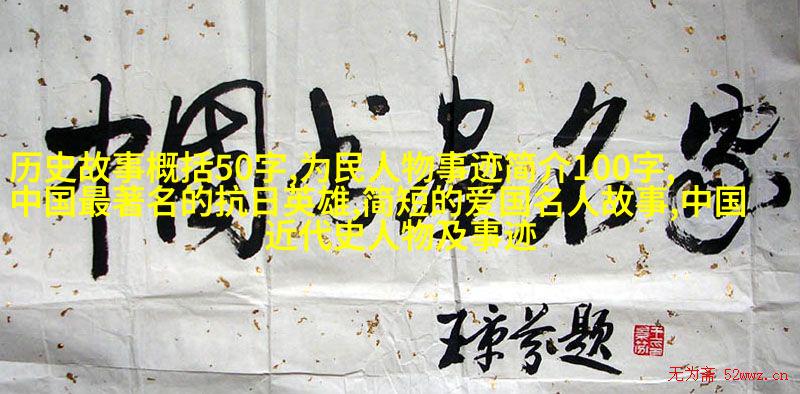 中国书画名家
历史故事概括50字,为民人物事迹简介100字,
中国最著名的抗日英雄,简短的爱国名人故事,中国
近代史人物及事迹
王景芬题
无为斋 52wwz.cn